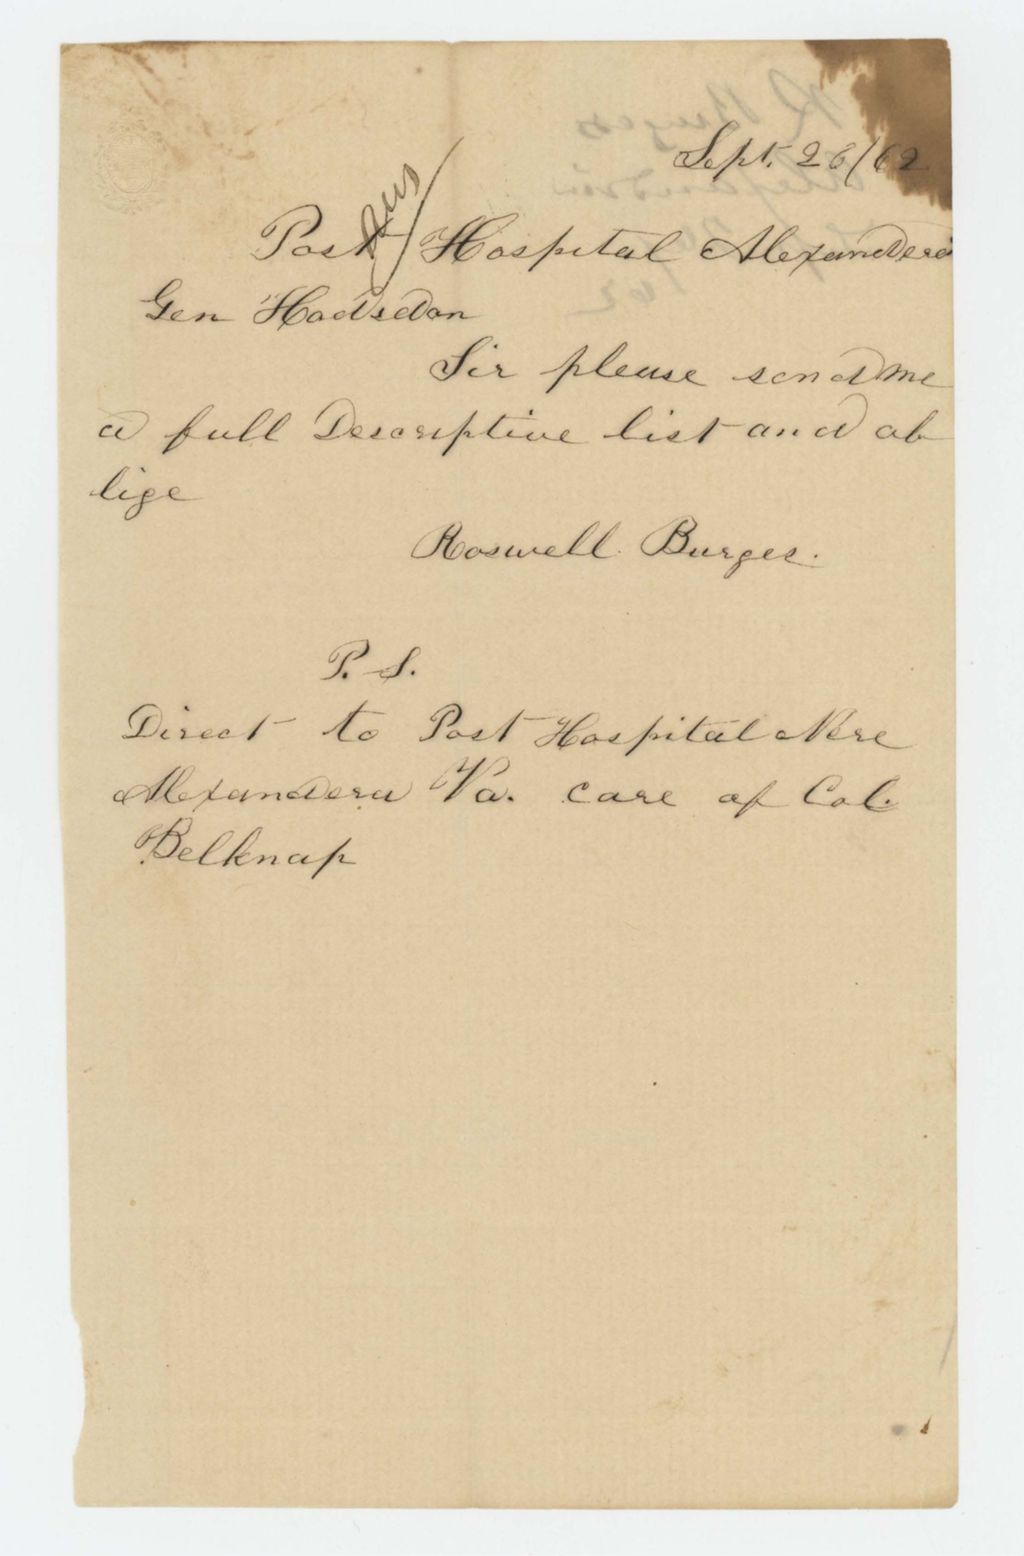 Sept. 26/62
Ans
Post Hospital Alexandera
Gen Hodsdon
Sir please send me
a full Descriptive list and ob
lige
Roswell Burges.
P. S.
Direct to Post Hospital Nere
Alexandera Va. care of Col.
Belknap